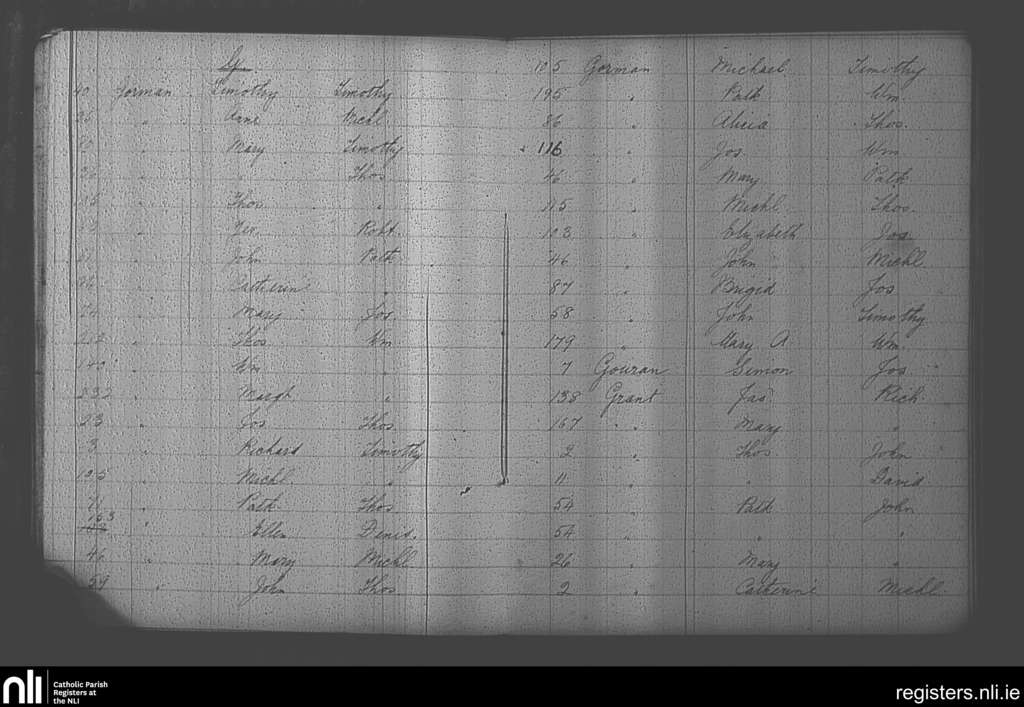 G
40 Gorman Timothy Timothy
" Anne Michl
" Mary Timothy
" " Thos
" Thos "
" Robt
" John Patk
" Catherine "
" Mary Jos
" Thos Wm
" Wm "
232 " Margt "
23 " Jos Thos
3 " Richard Timothy
105 " Michl "
71 " Patk Thos
163
" Ellen Denis
46 " Mary Michl
59 " John Thos
105 Gorman Michael Timothy
195 " Patk Wm
86 " Alicia Thos.
116 " Jos Wm
46 " Mary Patk
115 " Michl Thos.
103 " Elizabeth Jos
46 " John Michl
87 " Brigid Jos
58 " John Timothy
179 " Mary A Wm.
7 Gouran Simon Jos
138 Grant Jas Rich.
167 " Mary "
2 " Thos John
11 " " David
54 " Patk John
54 " " "
26 " Mary "
2 " Catherine Michl.
nli
Catholic Parish
Registers at
the NLI
registers.nli.ie